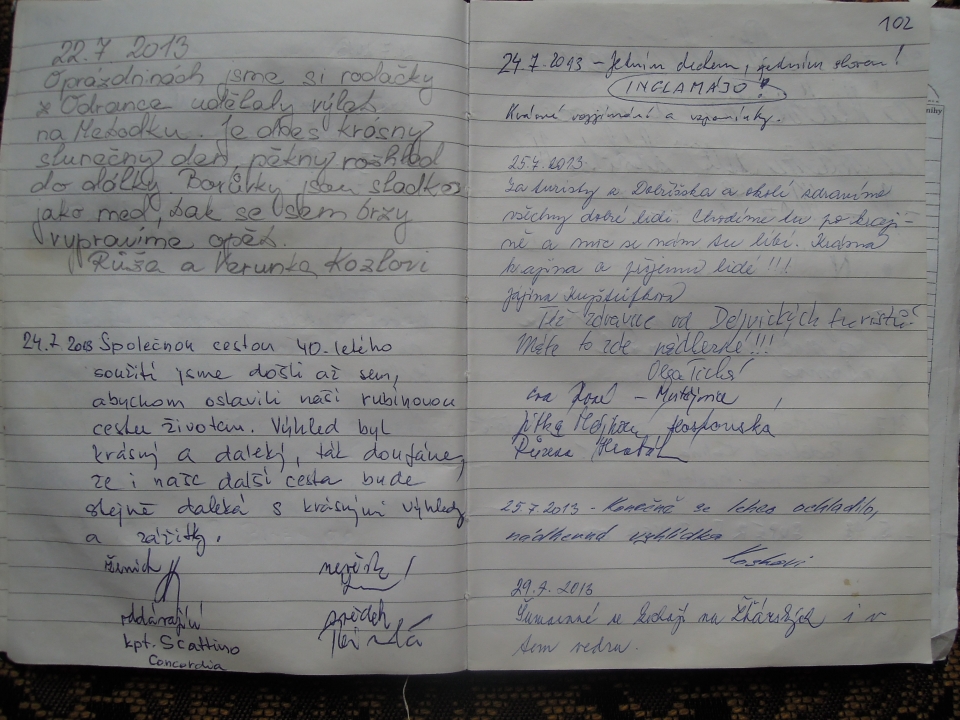 22.7. 2013
O prázdninách jsme si rodačky
z Odrance udělaly výlet
na Metodku. Je dnes krásný
slunečný den, pěkný rozhled
do dálky. Borůvky jsou sladké
jako med, tak se sem brzy
vypravíme opět.
Růža a Verunka Kozlovi
24.7 2013 Společnou cestou 40. letého
soužití jsme došli až sem,
abychom oslavili naši rubínovou
cestu životem. Výhled byl
krásný a daleký, tak doufáme,
že i naše další cesta bude
stejně daleká s krásnými výhledy
a zážitky.
ženich nevěsta
oddávající svědek
kpt. Scattino
Concordia
102
24.7.2013 – Jedním dechem, jedním slovem!
INCLAMÁJO!
Krásné a vzpomínky.
25.7.2013
Za turisty z Dobříšska a okolí zdravíme
všechny dobré lidi. Chodíme tu po kraji-
ně a moc se nám tu líbí. Krásná
krajina a příjemní lidé !!!
Též zdravíce od Dejvických turistů.
Máte to zde nádherné !!!
Olga Tichá
Jitka
Růžena
25.7.2013 - Konečně se lehce ochladilo,
nádherná vyhlídka
29.7.2013
se na Žďárských i v
tom vedru.